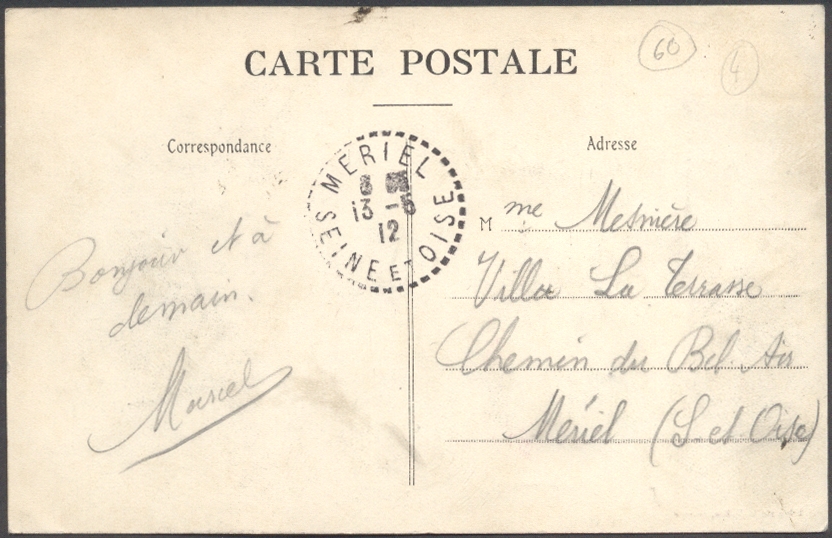 CARTE POSTALE
60
4
Correspondance
Adresse
MERIEL
13 -5
12
SEINE ET OISE
Bonjour et à
demain.
Marcel
M me Mesnière
Villa La Terrasse
Chemin du Bel Air
Mériel (S et Oise)